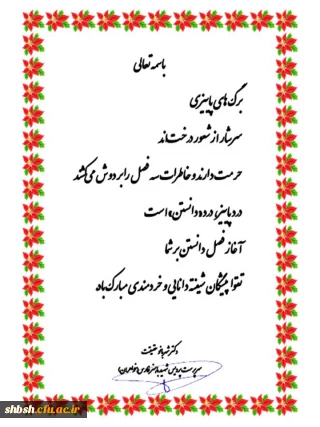 باسمه تعالی
برگ های پاییزی
سرشار از شعور درخت‌اند
حرمت دارند و خاطرات سه فصل را بر دوش می کشند
درد پاییز، درد «دانستن» است
آغاز فصل دانستن بر شما
تقوا پیشگان شیفته دانایی و خردمندی مبارک باد
دکتر
سرپرست پردیس شهید باهنر فارس (خواهران)
shbsh.cfu.ac.ir